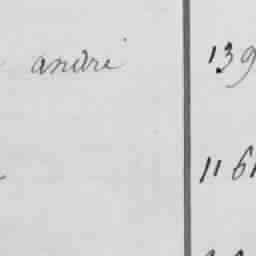 andré 139
1161